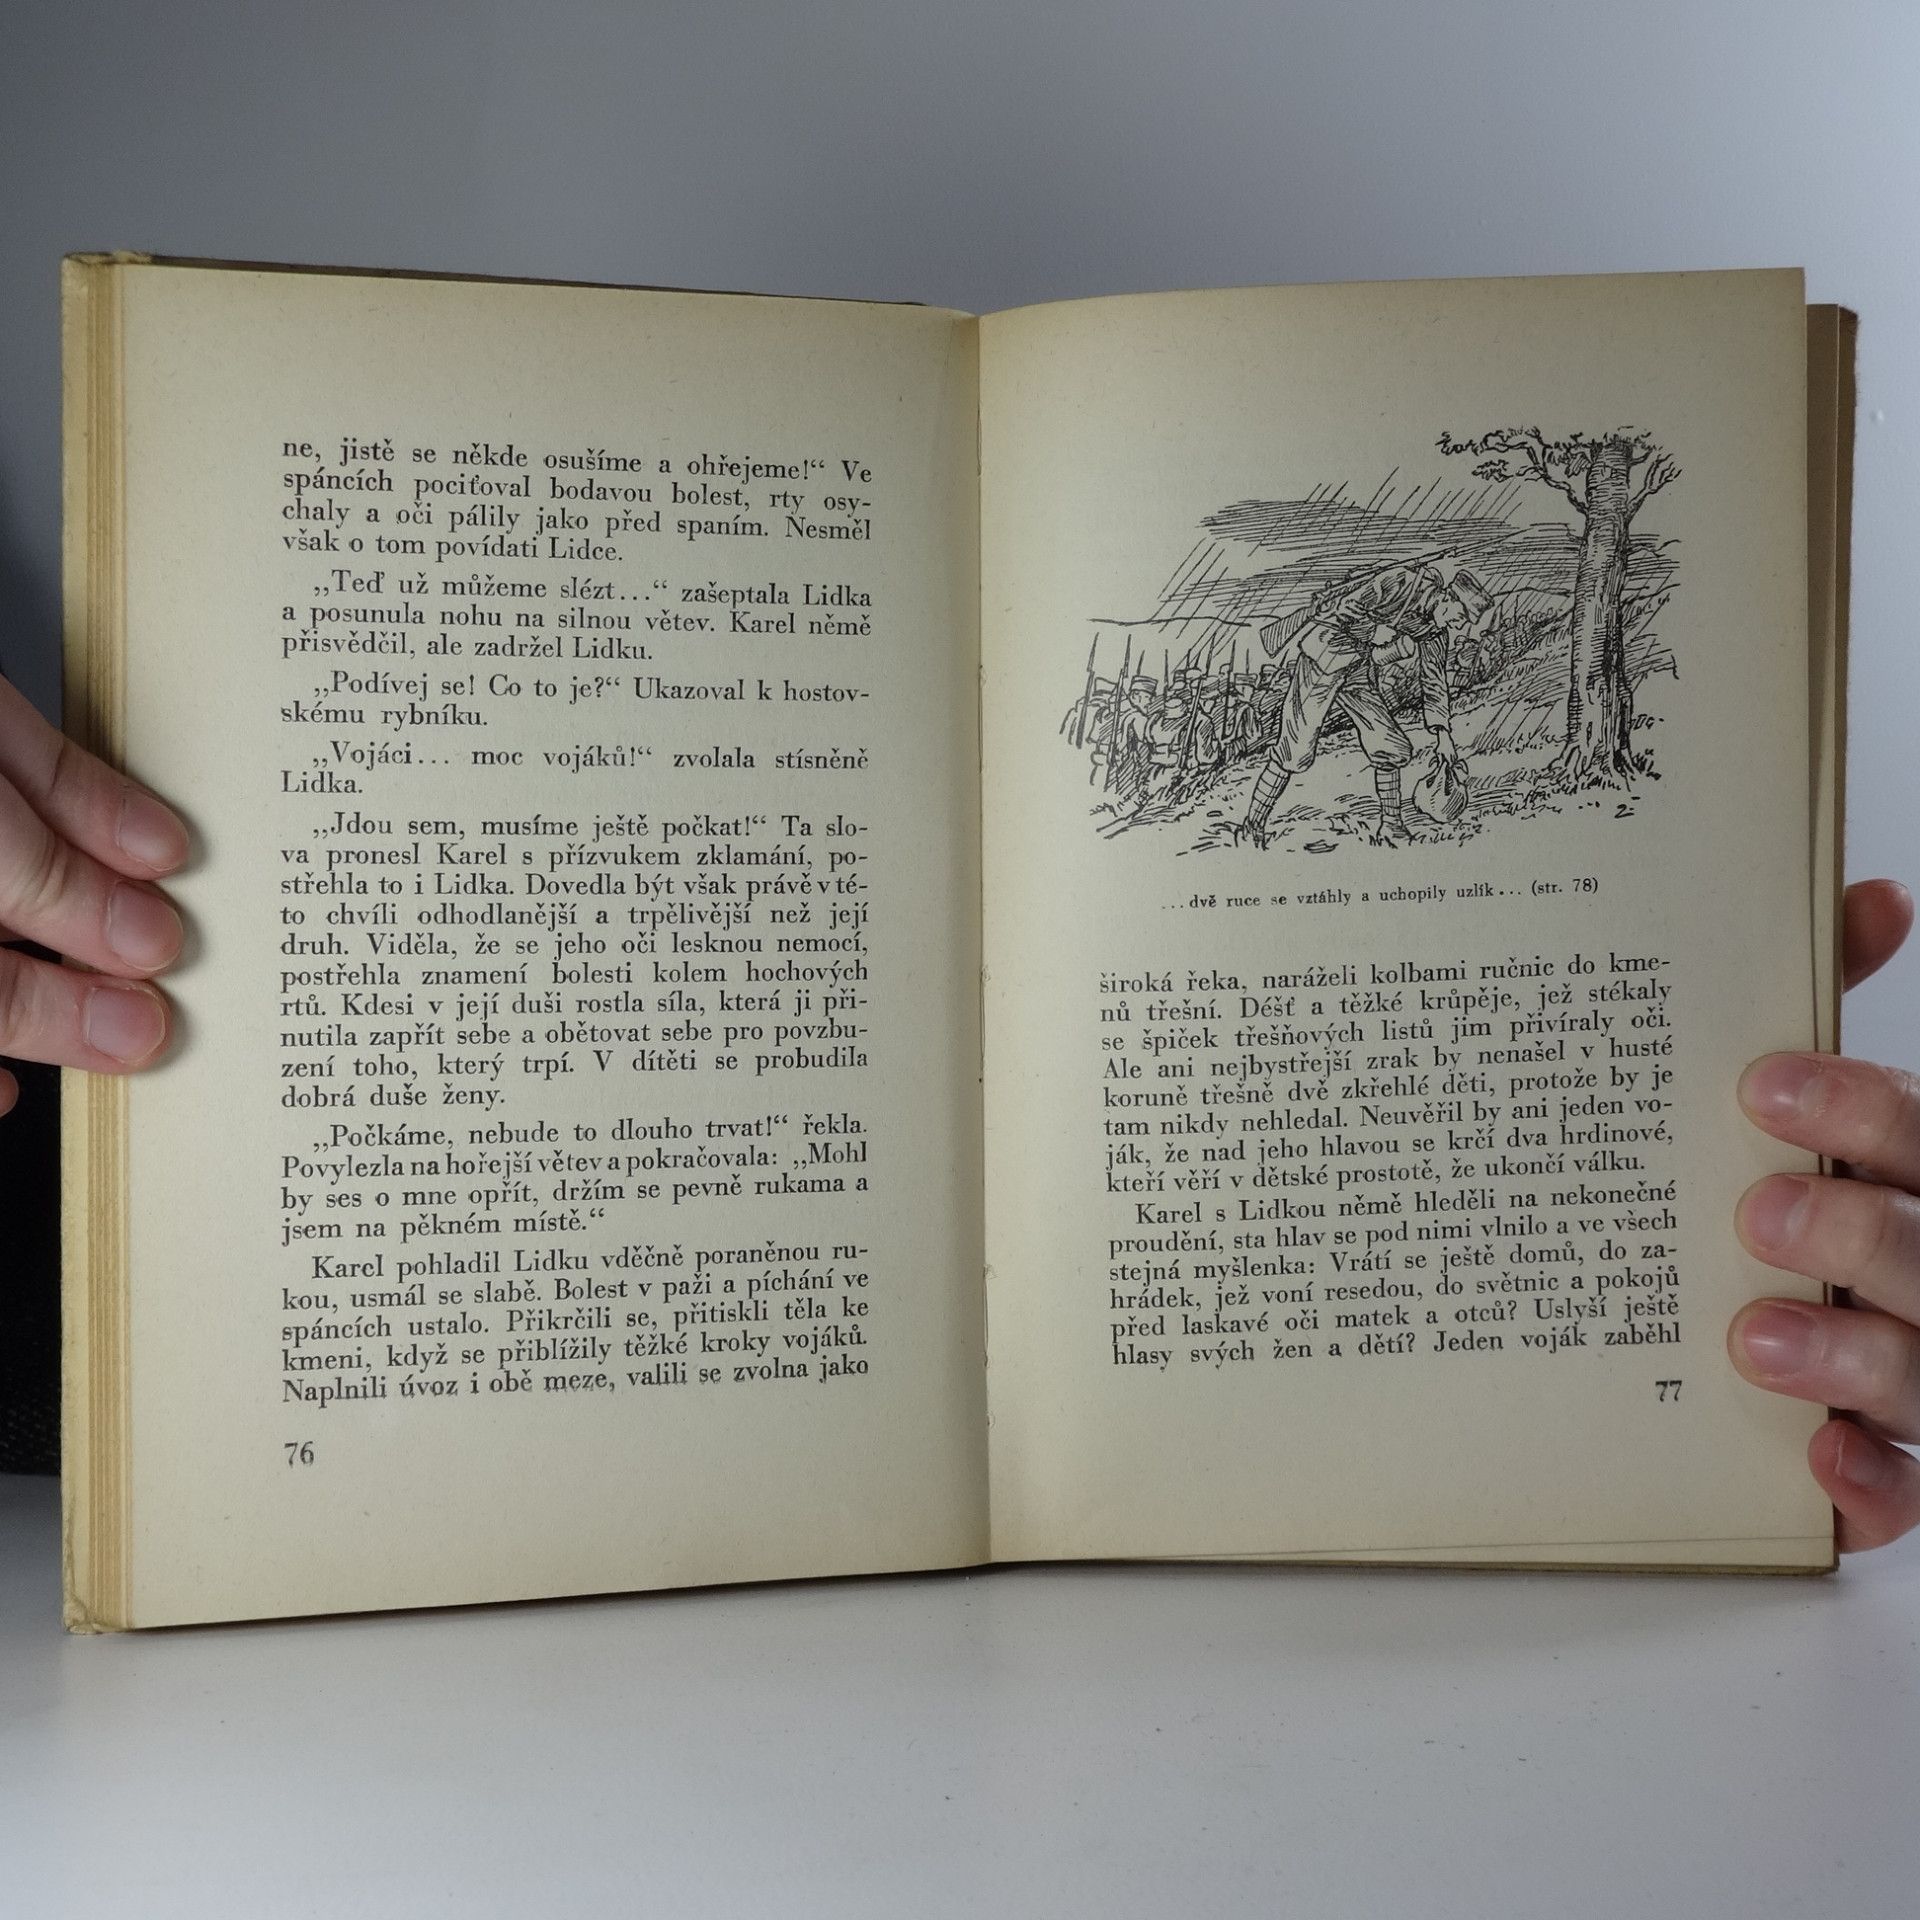 ne, jistě se někde osušíme a ohřejeme!“ Ve
spáncích pociťoval bodavou bolest, rty osy-
chaly a oči pálily jako před spaním. Nesměl
však o tom povídati Lidce.
„Teď už můžeme slézt...“ zašeptala Lidka
a posunula nohu na silnou větev. Karel němě
přisvědčil, ale zadržel Lidku.
„Podívej se! Co to je?“ Ukazoval k hostov-
skému rybníku.
„Vojáci... moc vojáků!“ zvolala stísněně
Lidka.
„Jdou sem, musíme ještě počkat!“ Ta slo-
va pronesl Karel s přízvukem zklamání, po-
střehla to i Lidka. Dovedla být však právě v té-
to chvíli odhodlanější a trpělivější než její
druh. Viděla, že se jeho oči lesknou nemocí,
postřehla znamení bolesti kolem hochových
rtů. Kdesi v její duši rostla síla, která ji při-
nutila zapřít sebe a obětovat sebe pro povzbu-
zení toho, který trpí. V dítěti se probudila
dobrá duše ženy.
„Počkáme, nebude to dlouho trvat!“ řekla.
Povylezla na hořejší větev a pokračovala: „Mohl
by ses o mne opřít, držím se pevně rukama a
jsem na pěkném místě.“
Karel pohladil Lidku vděčně poraněnou ru-
kou, usmál se slabě. Bolest v paži a píchání ve
spáncích ustalo. Přikrčili se, přitiskli těla ke
kmeni, když se přiblížily těžké kroky vojáků.
Naplnili úvoz i obě meze, valili se zvolna jako
76
...dvě ruce se vztáhly a uchopily uzlík... (str. 78)
široká řeka, naráželi kolbami ručnic do kme-
nů třešní. Déšť a těžké krůpěje, jež stékaly
se špiček třešňových listů jim přivíraly oči.
Ale ani nejbystřejší zrak by nenašel v husté
koruně třešně dvě zkřehlé děti, protože by je
tam nikdy nehledal. Neuvěřil by ani jeden vo-
ják, že nad jeho hlavou se krčí dva hrdinové,
kteří věří v dětské prostotě, že ukončí válku.
Karel s Lidkou němě hleděli na nekonečné
proudění, sta hlav se pod nimi vlnilo a ve všech
stejná myšlenka: Vrátí se ještě domů, do za-
hrádek, jež voní resedou, do světnic a pokojů
před laskavé oči matek a otců? Uslyší ještě
hlasy svých žen a dětí? Jeden voják zaběhl
77